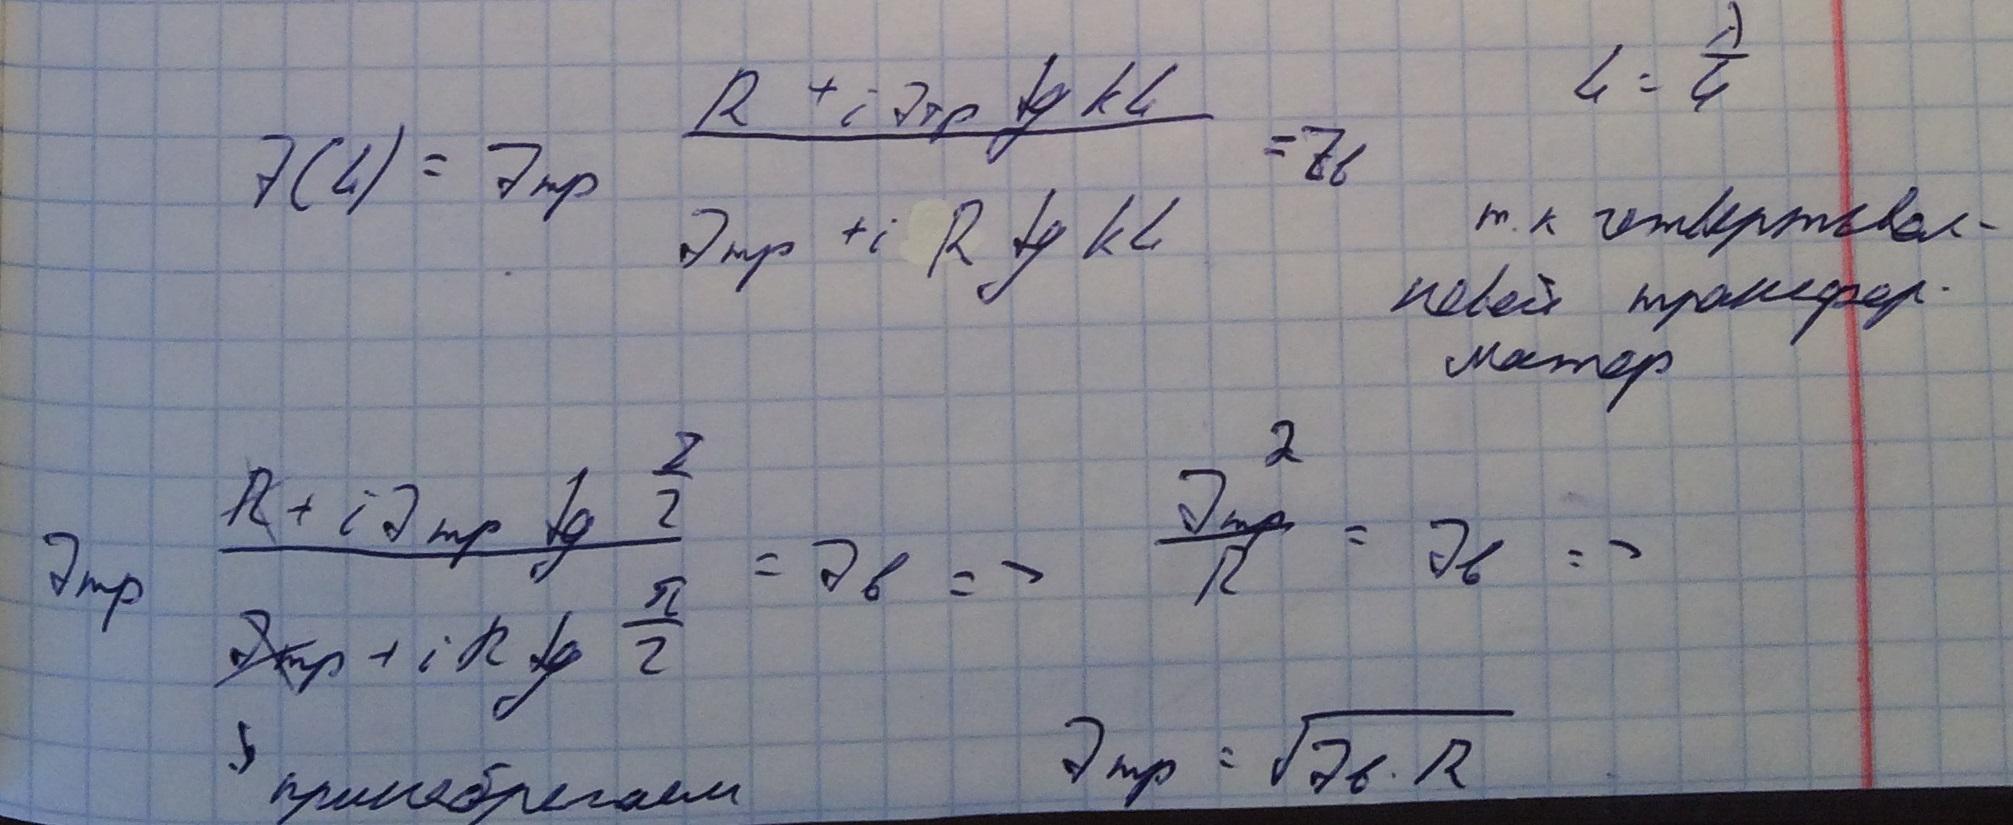 L = λ/4
Z(L) = Zтр (R + i Zтр tg kL)/(Zтр + i R tg kL) = Zв
т.к четвертьвол-
новой трансфор-
матор
Zтр (R + i Zтр tg π/2)/(Zтр + i R tg π/2) = Zв => Zтр²/R = Zв =>
принебрегаем
Zтр = √(Zв · R)